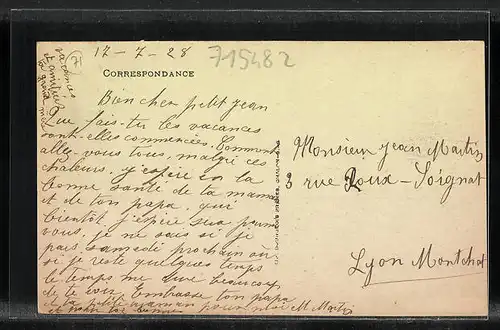 17-7-28
715482
CORRESPONDANCE
Bien cher petit Jean
Que fais-tu les vacances
sont-elles commencées, Comment
allez-vous tous, malgré ces
chaleurs, j'espère en la
bonne santé de ta maman
et de ton papa, qui
bientôt j'espère sera parmi
vous, je ne sais si je
pars samedi prochain ou
si je reste quelques temps
le temps me dure beaucoup
de te voir. Embrasse ton papa
et ta petite maman pour moi M. Martin
Monsieur Jean Martin
3 rue Roux-Soignat
Lyon Montchat